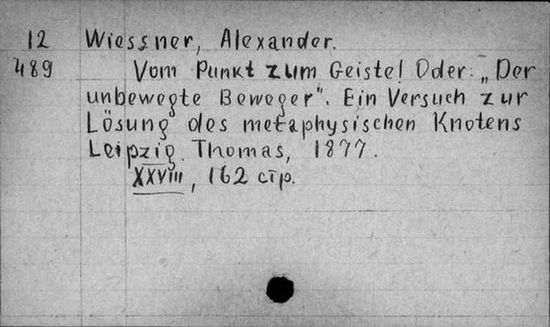 12 Wiessner, Alexander.
489 Vom Punkt zum Geiste! Oder: „Der
unbewegte Beweger". Ein Versuch zur
Lösung des metaphysischen Knotens
Leipzig. Thomas, 1877.
XXVIII, 162 стр.